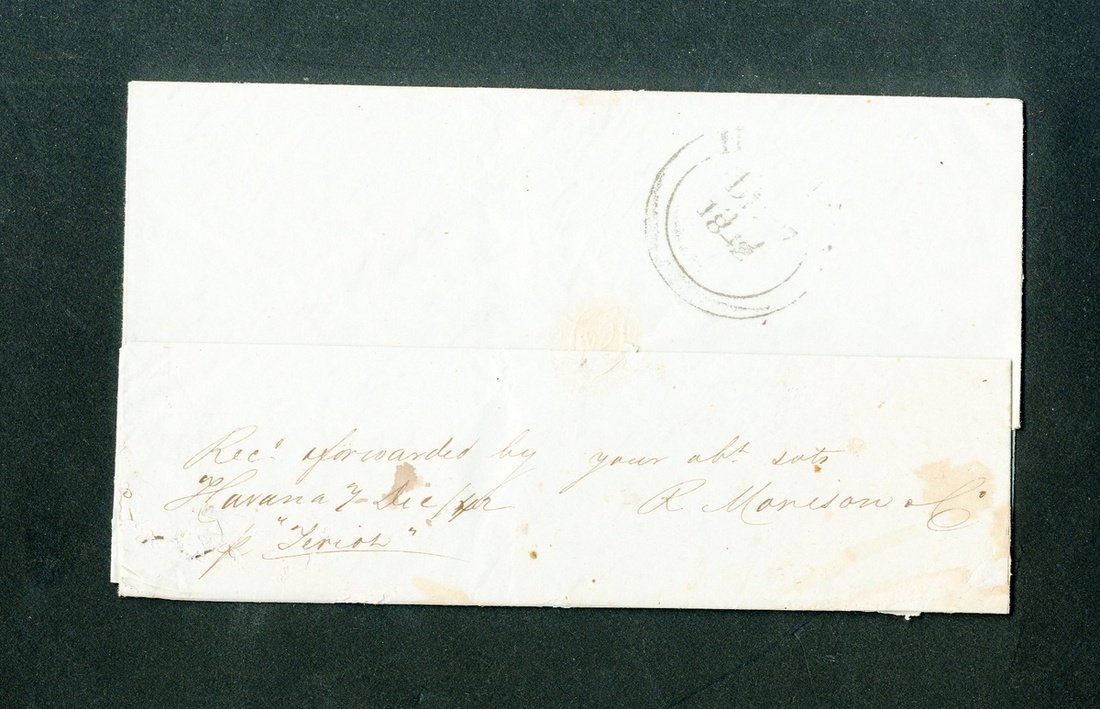 1842
Rec.d & forwarded by your obt. sts
Havana 7 Dec/42 R Morison & Co
p. "Teviot"